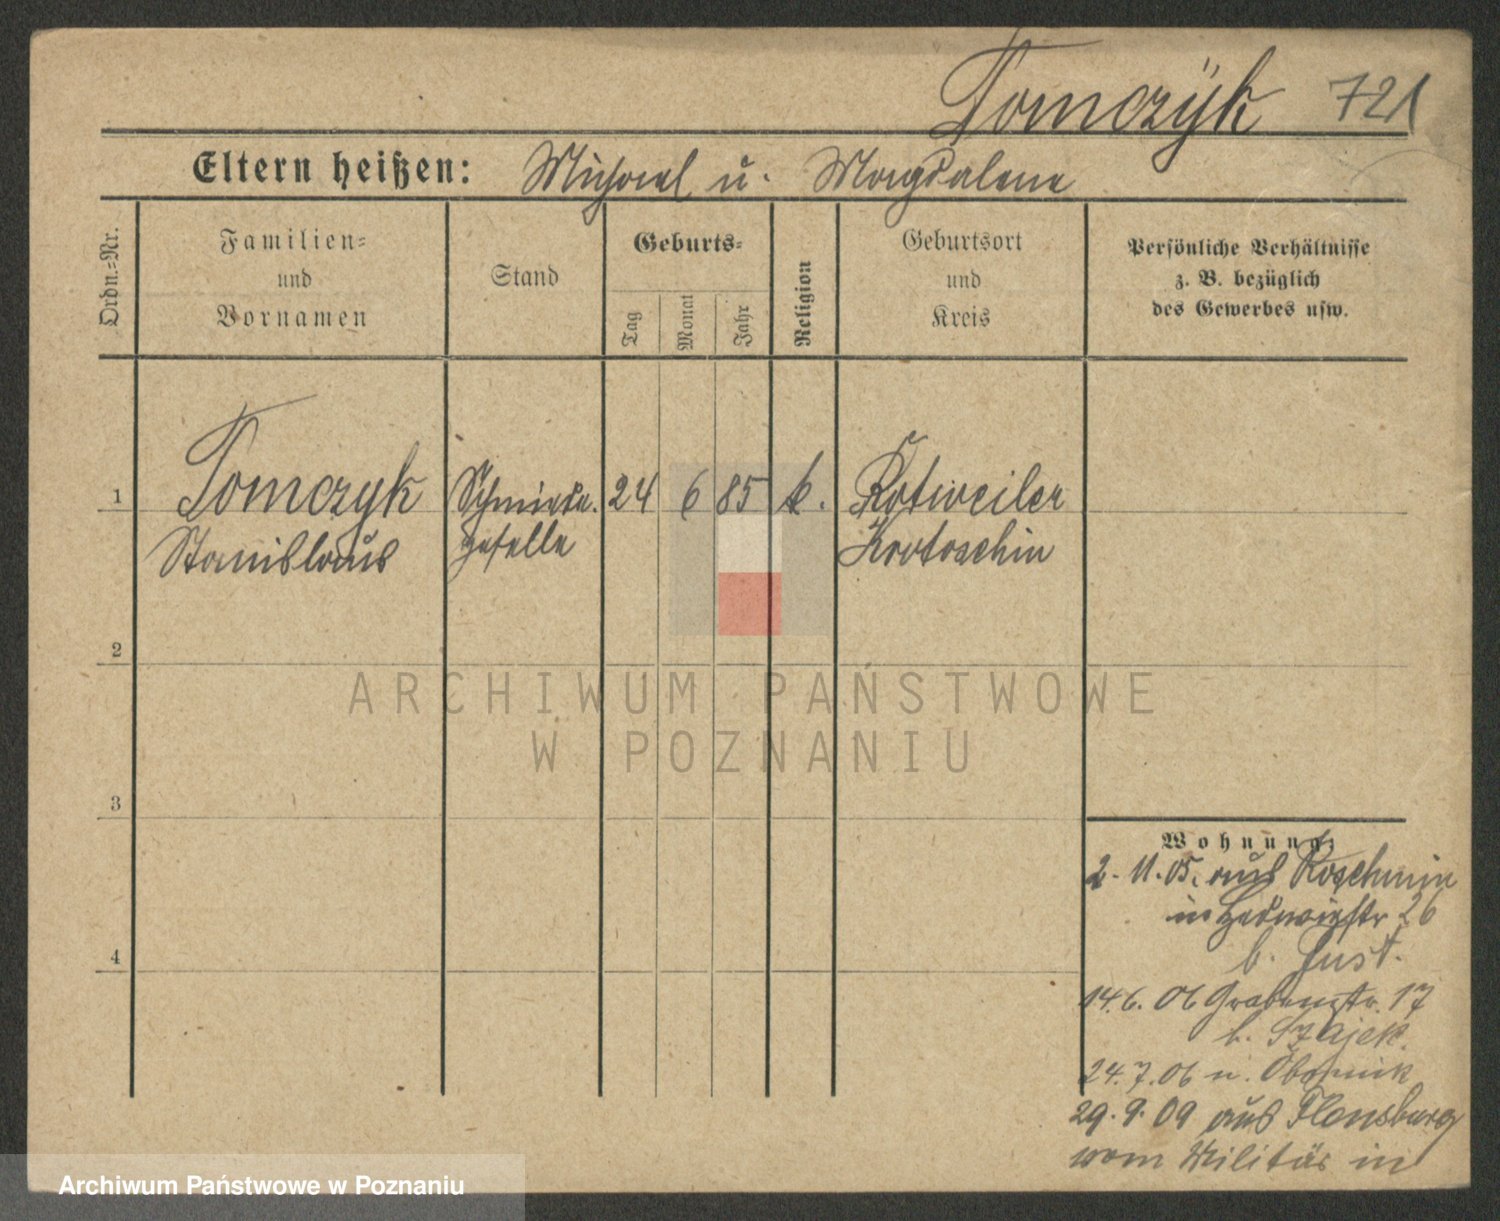 Tomczÿk 721
Eltern heißen: Michael u. Magdalena
Ordn.=Nr.
Familien=
und
Vornamen
Stand
Geburts=
Tag
Monat
Jahr
Religion
Geburtsort
und
Kreis
Persönliche Verhältnisse
z. B. bezüglich
des Gewerbes usw.
1
Tomczyk Schmiede. 24 6 85 k. Rotweiler
Stanislaus geselle Krotoschin
2
3
4
Wohnung:
2. 11. 05. aus Koschmin
in Hedwigstr 26
b. Just.
14.6. 06 Grabenstr. 17
b. Szajek.
24.7.06 n. Obornik
29.9.09 aus Flensburg
vom Militär in
ARCHIWUM PAŃSTWOWE
W POZNANIU
Archiwum Państwowe w Poznaniu